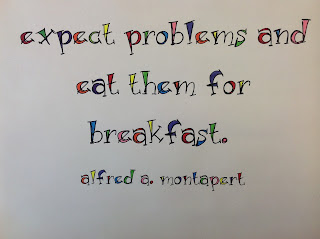 expect problems and
eat them for
breakfast.
alfred a. montapert